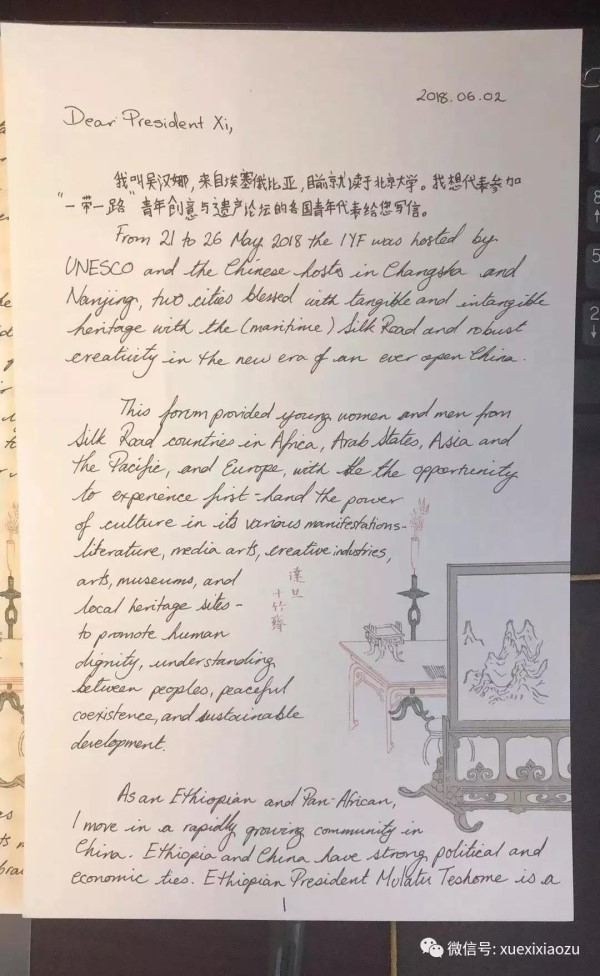 2018.06.02
Dear President Xi,
我叫吴汉娜，来自埃塞俄比亚，目前就读于北京大学。我想代表参加
“一带一路”青年创意与遗产论坛的各国青年代表给您写信。
From 21 to 26 May 2018 the IYF was hosted by
UNESCO and the Chinese hosts in Changsha and
Nanjing, two cities blessed with tangible and intangible
heritage with the (maritime) Silk Road and robust
creativity in the new era of an ever open China.
This forum provided young women and men from
Silk Road countries in Africa, Arab States, Asia and
the Pacific, and Europe, with the the opportunity
to experience first-hand the power
of culture in its various manifestations-
literature, media arts, creative industries,
arts, museums, and
local heritage sites-
to promote human
dignity, understanding
between peoples, peaceful
coexistence, and sustainable
development.
十竹齋
As an Ethiopian and Pan-African,
I move in a rapidly growing community in
China. Ethiopia and China have strong political and
economic ties. Ethiopian President Mulatu Teshome is a
1
微信号: xuexixiaozu